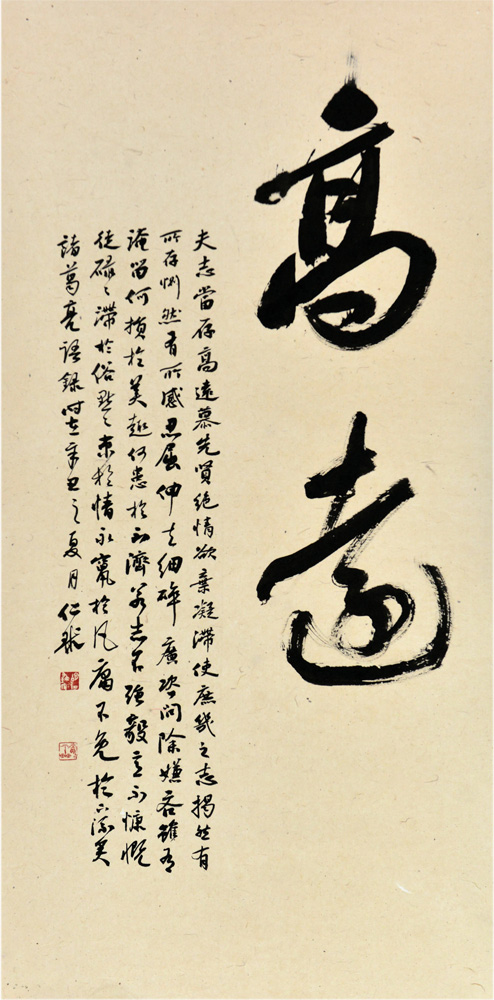 高遠
夫志當存高遠慕先賢絕情欲棄凝滯使庶幾之志揭然有
所存惻然有所感忍屈伸去細碎廣咨問除嫌吝雖有
淹留何損於美趣何患於不濟若志不強毅意不慷慨
徒碌〻滯於俗默〻束於情永竄於凡庸不免於下流矣
諸葛亮語錄時在辛丑之夏月仁